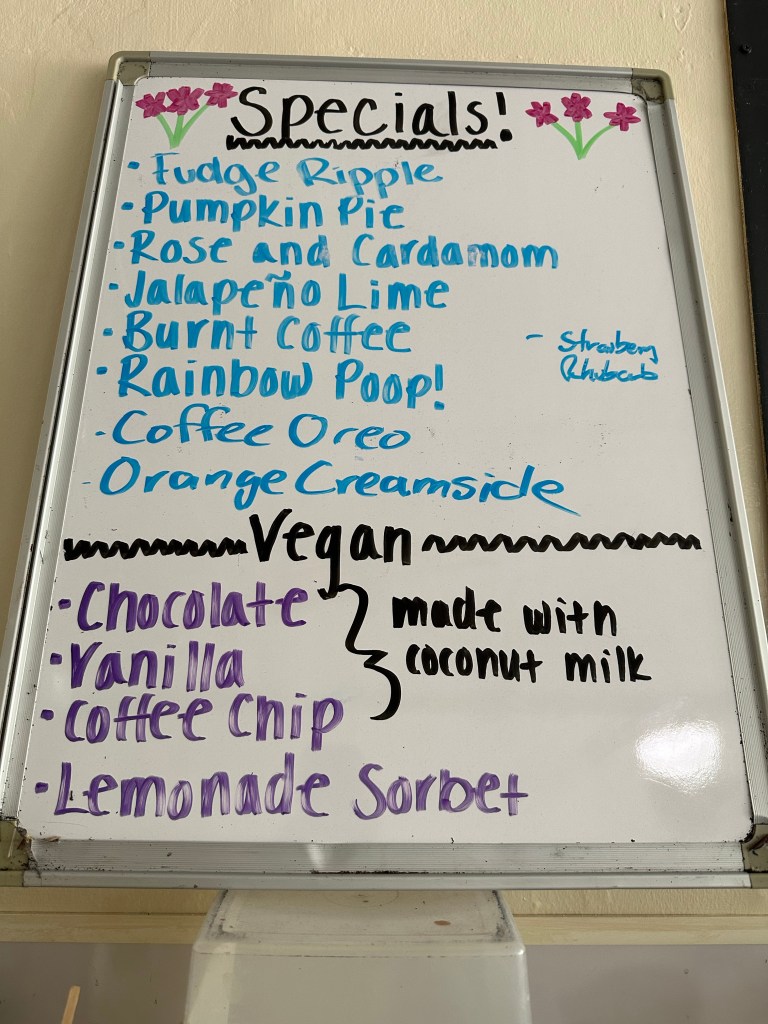 Specials!
• Fudge Ripple
• Pumpkin Pie
• Rose and Cardamom
• Jalapeño Lime
• Burnt Coffee
• Rainbow Poop!
- Coffee Oreo
- Orange Creamside
- Strawberry
Rhubarb
Vegan
• Chocolate
• Vanilla
• Coffee Chip
made with
coconut milk
• Lemonade Sorbet